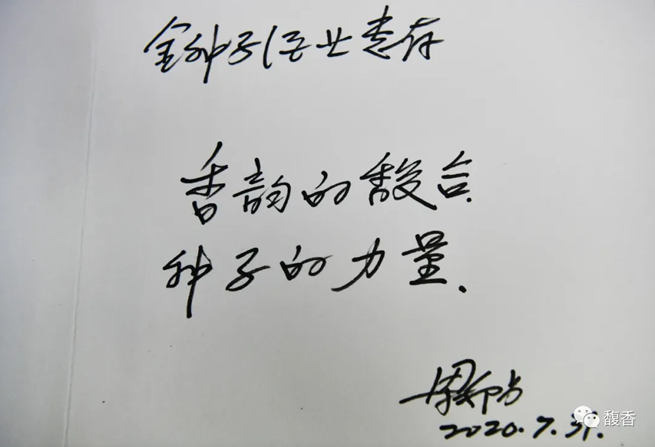 金种子酒业惠存
香韵的馥合.
种子的力量.
2020.7.31.
馥香